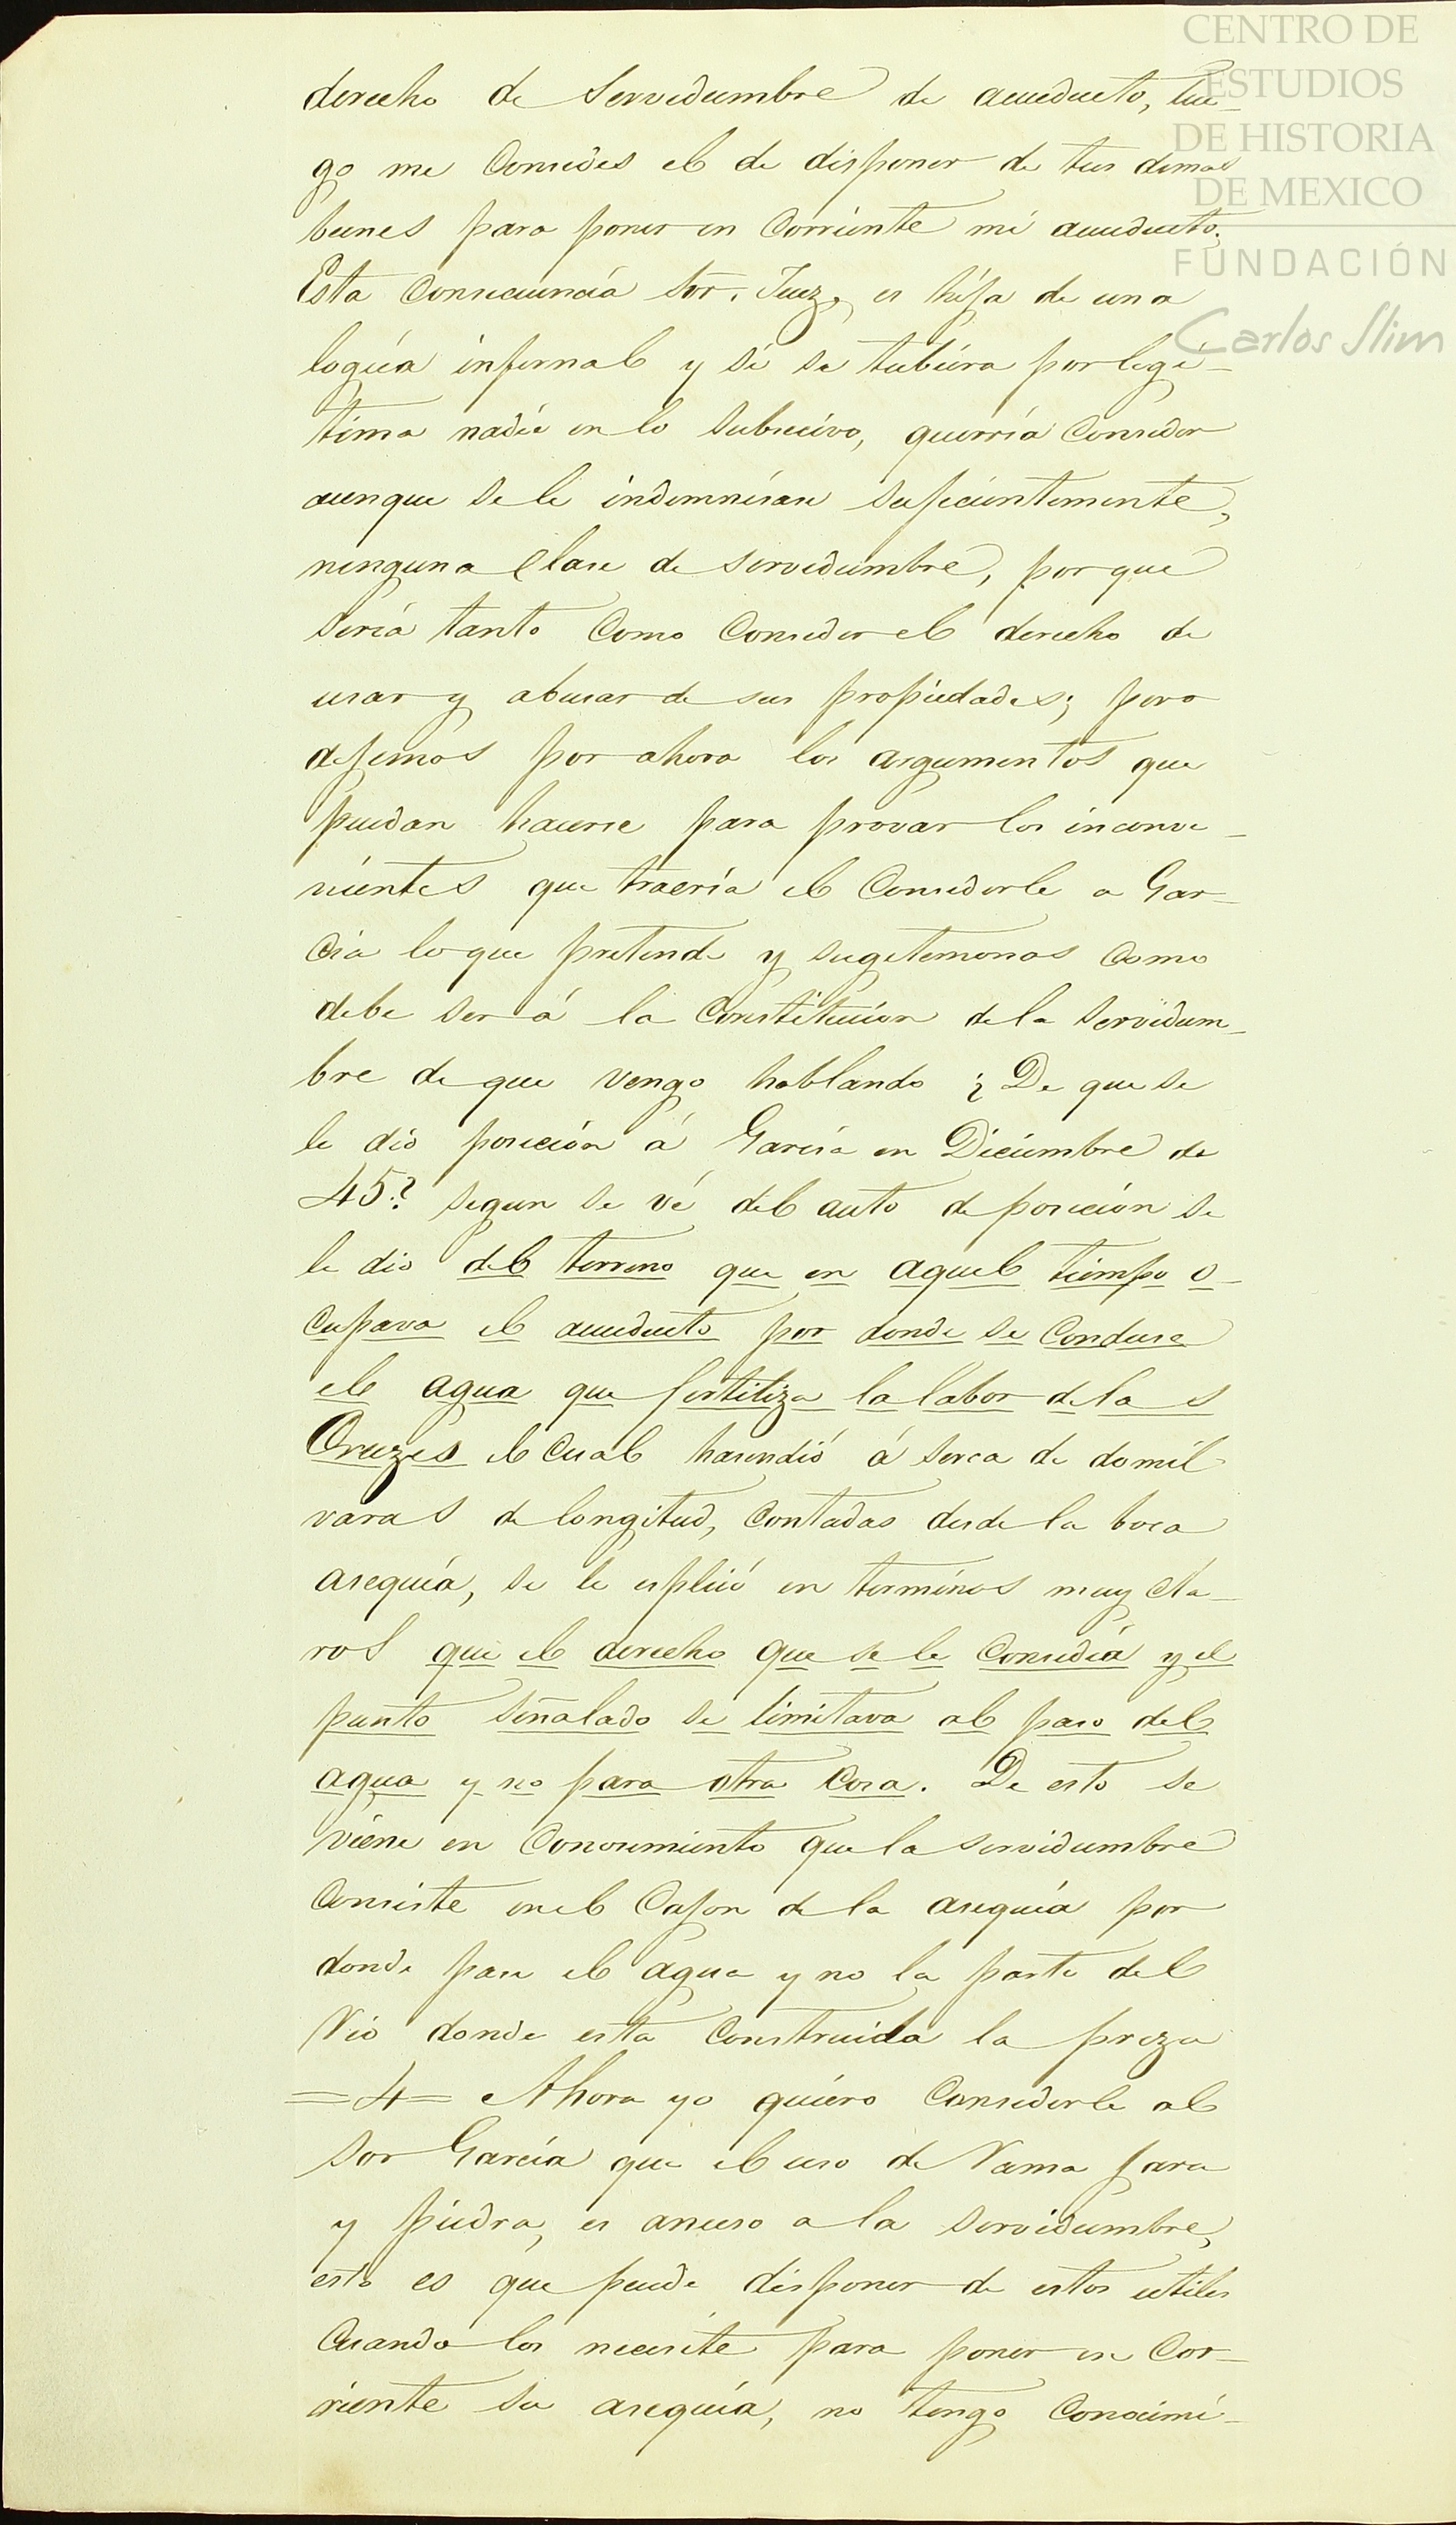 CENTRO DE
ESTUDIOS
DE HISTORIA
DE MEXICO
FUNDACIÓN
Carlos Slim
derecho de servidumbre de acueducto, lue-
go me consedes el de disponer de tus demas
bienes para poner en corriente mi acueducto.
Esta consecuencia Sor. Juez, es hija de una
logica infernal y si se tubiera por legi-
tima nadie en lo subsecivo, querria conseder
aunque se le indemnisase suficientemente,
ninguna clase de servidumbre, porque
seria tanto como conseder el derecho de
usar y abusar de sus propiedades; pero
dejemos por ahora los argumentos que
puedan hacerse para provar los inconve-
nientes que traeria el consederle a Gar-
cia lo que pretende y sugetemonos como
debe ser á la constitucion de la servidum-
bre de que vengo hablando ¿De que se
le dió posecion á Garcia en Diciembre de
45? segun se vé del auto de posecion se
le dio del terreno que en aquel tiempo o-
cupava el acueducto por donde se conduse
el agua que fertiliza la labor de las
Cruzes el cual hasendió á serca de domil
varas de longitud, contadas desde la boca
asequia, se le esplicó en terminos muy cla-
ros que el derecho que se le consedia y el
punto señalado se limitava al paso del
agua y no para otra cosa. De esto se
viene en conosimiento que la servidumbre
consiste en el cajon de la asequia por
donde pasa el agua y no la parte del
Rio donde esta construida la preza
=4= Ahora yo quiero consederle al
Sor Garcia que el uso de Rama jara
y piedra, es anecso a la servidumbre,
esto es que puede disponer de estos utiles
cuando los necesite para poner en cor-
riente su asequia, no tengo conocimi-